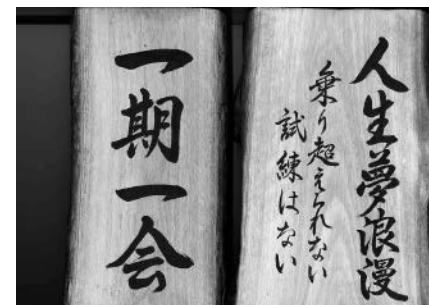 人生夢浪漫
乗り超えられない
試練はない
一期一会